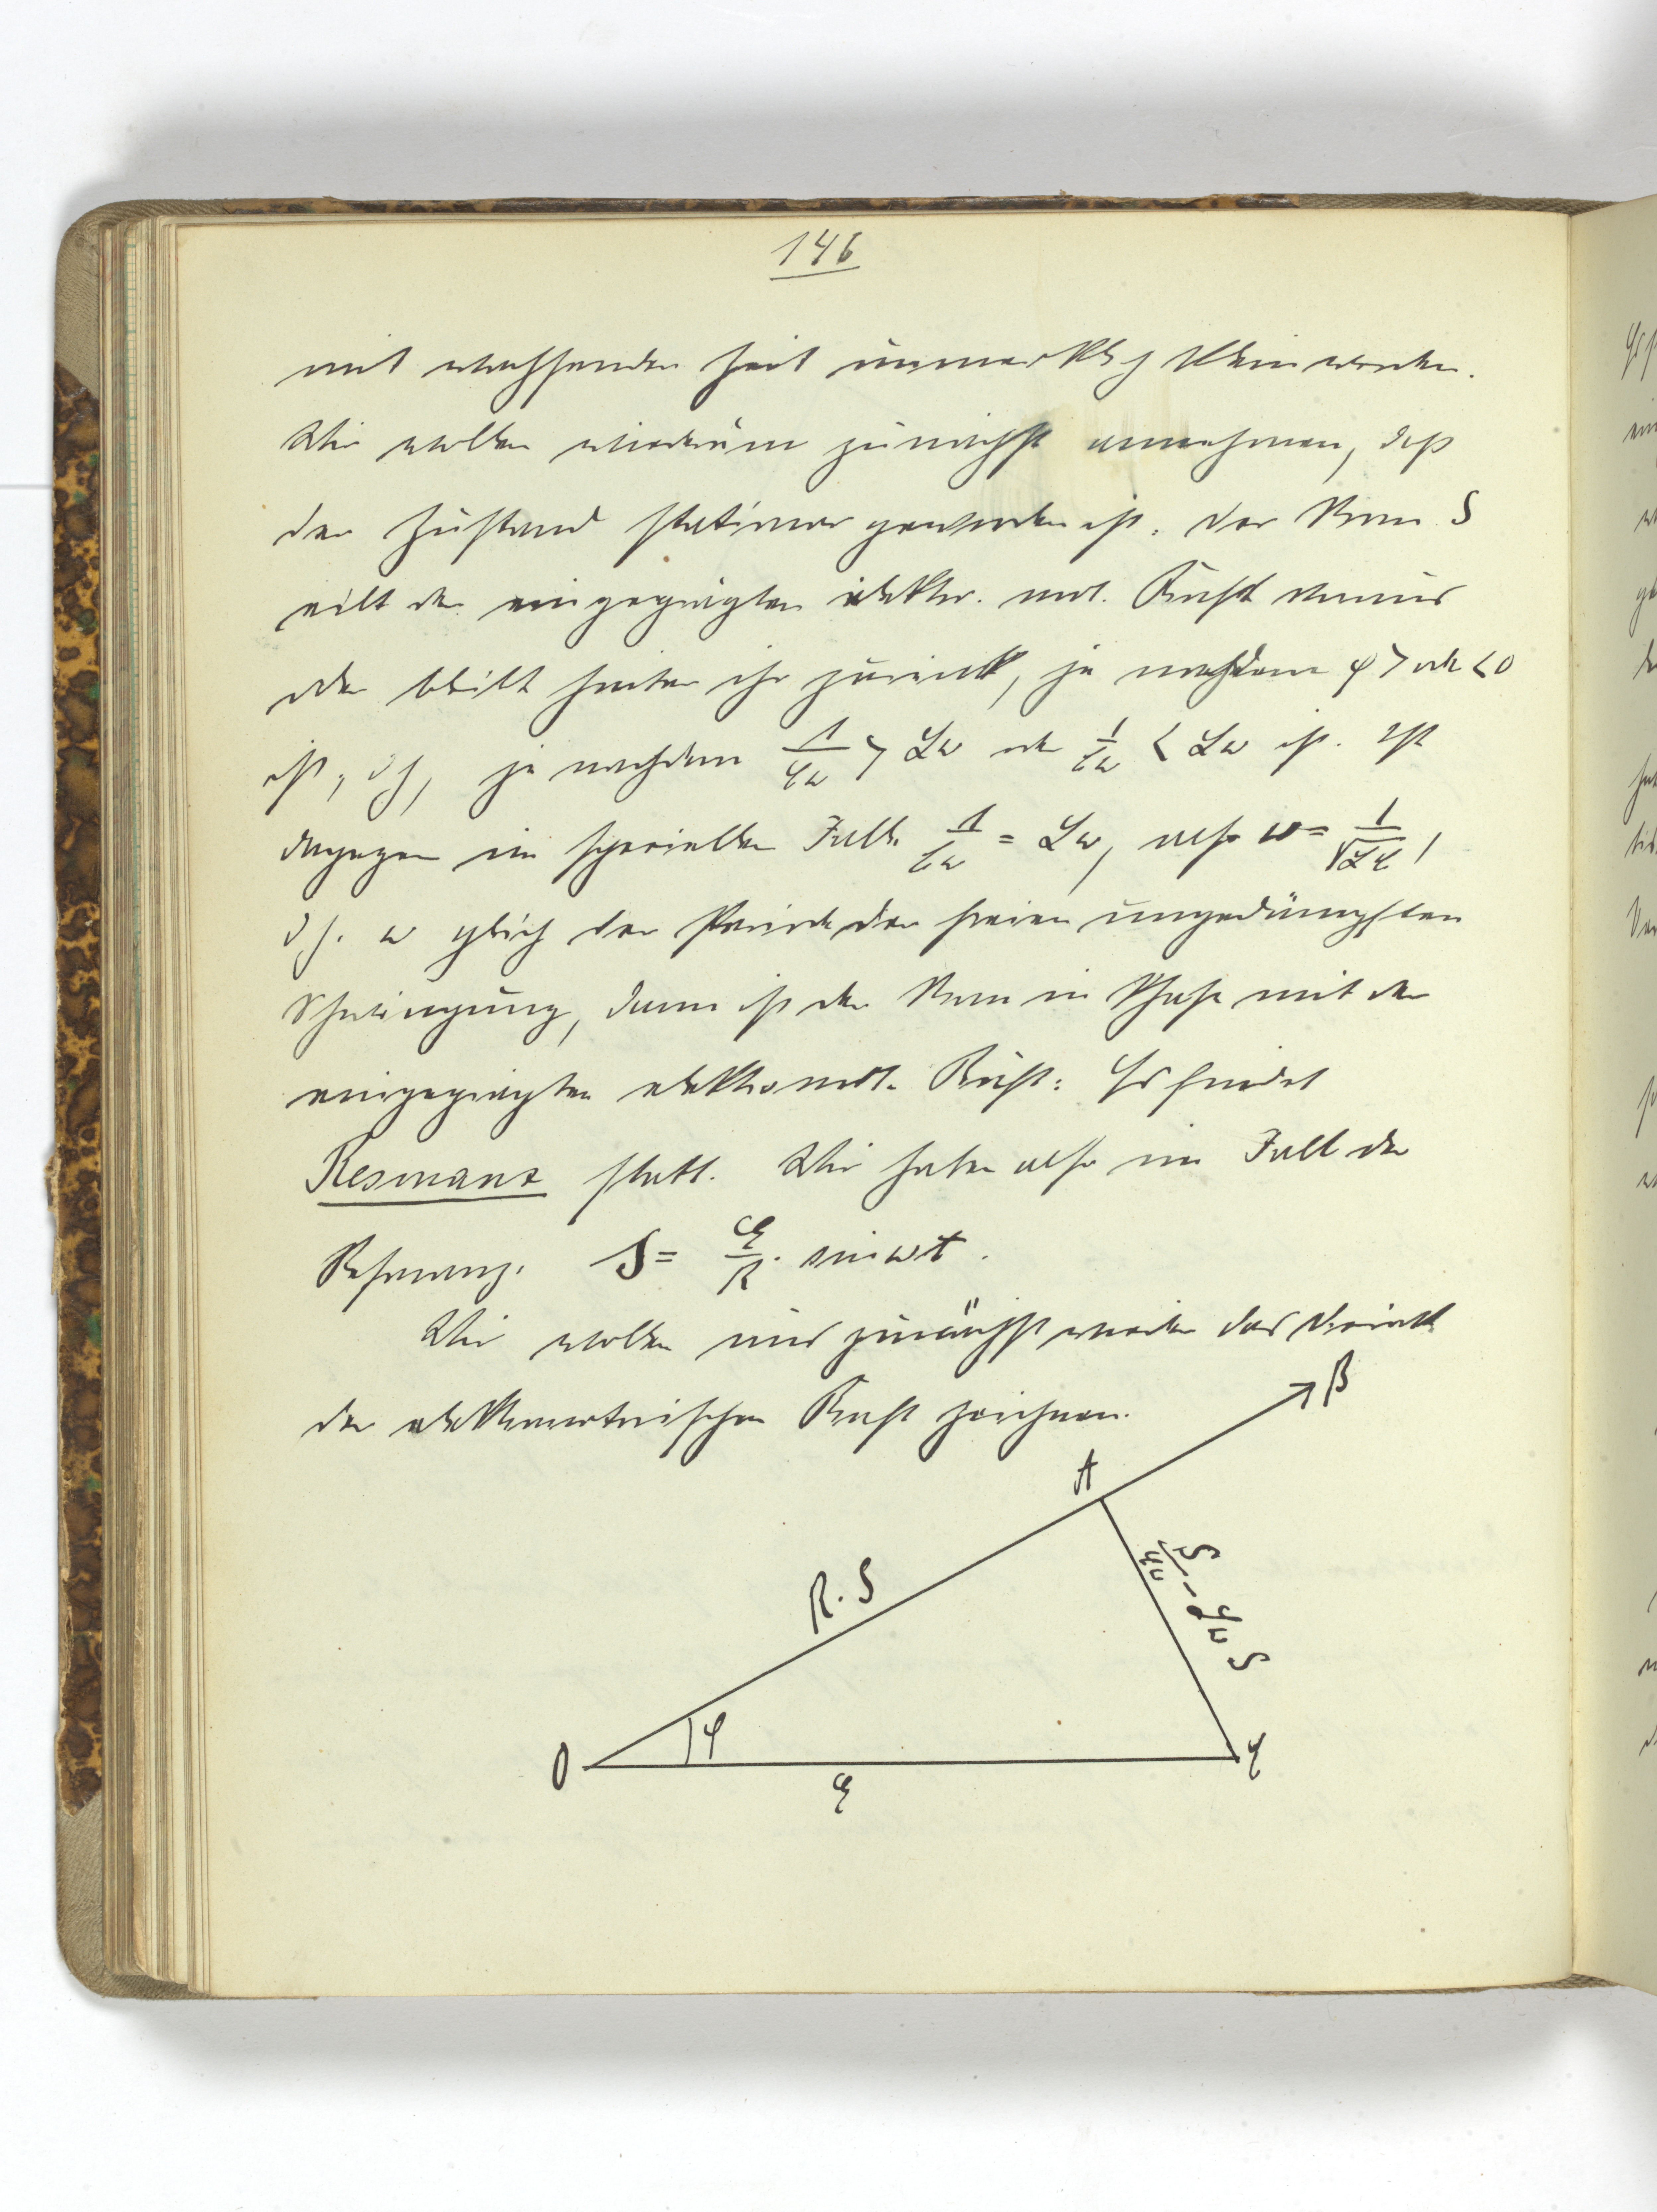 146
mit wachsender Zeit unmerklich klein werden.
Wir wollen wiederum zunächst annehmen, daß
der Zustand stationär geworden ist. Der Strom S
eilt der eingeprägten elektr. mot. Kraft voraus
oder bleibt hinter ihr zurück, je nachdem φ > oder < 0
ist, d.h., je nachdem 1/Cω > Lω oder 1/Cω < Lω ist. Ist
dagegen im speziellen Falle 1/Cω = Lω, also ω = 1/√LC,
d.h. ω gleich der Periode der freien ungedämpften
Schwingung, dann ist der Strom in Phase mit der
eingeprägten elektromot. Kraft: Es findet
Resonanz statt. Wir haben also im Fall der
Resonanz. S = E/R · sin ωt.
Wir wollen uns zunächst wieder das Dreieck
der elektromotorischen Kraft zeichnen.
B
A
R·S
S/Cω - LωS
φ
O
C
E